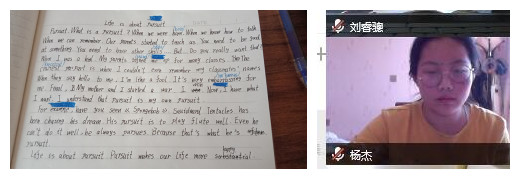 Life is about pursuit
Pursuit. What is a pursuit? When we were born. When we know how to talk.
When we can remember. Our parents started to teach us. You need to be good
at something. You need to have other But.. Do you really want that?
When I was a kid. My parents signed me up for many classes. The
pursuit is when I couldn't even remember my classmates' names.
When they say hello to me. I'm like a fool. It's very embarrassing for
me. Fool. My mother and I started a war. I won. Now, I have what
I want. I understand that pursuit is my own pursuit.
For have you seen in Spongebob? Squidward Tentacles has
been chasing his dream. His pursuit is to play flute well. Even he
can't do it well, he always pursues. Because that's what he's
pursuit.
Life is about pursuit. Pursuit makes our life more
happy
substantial.
刘睿骢
杨杰